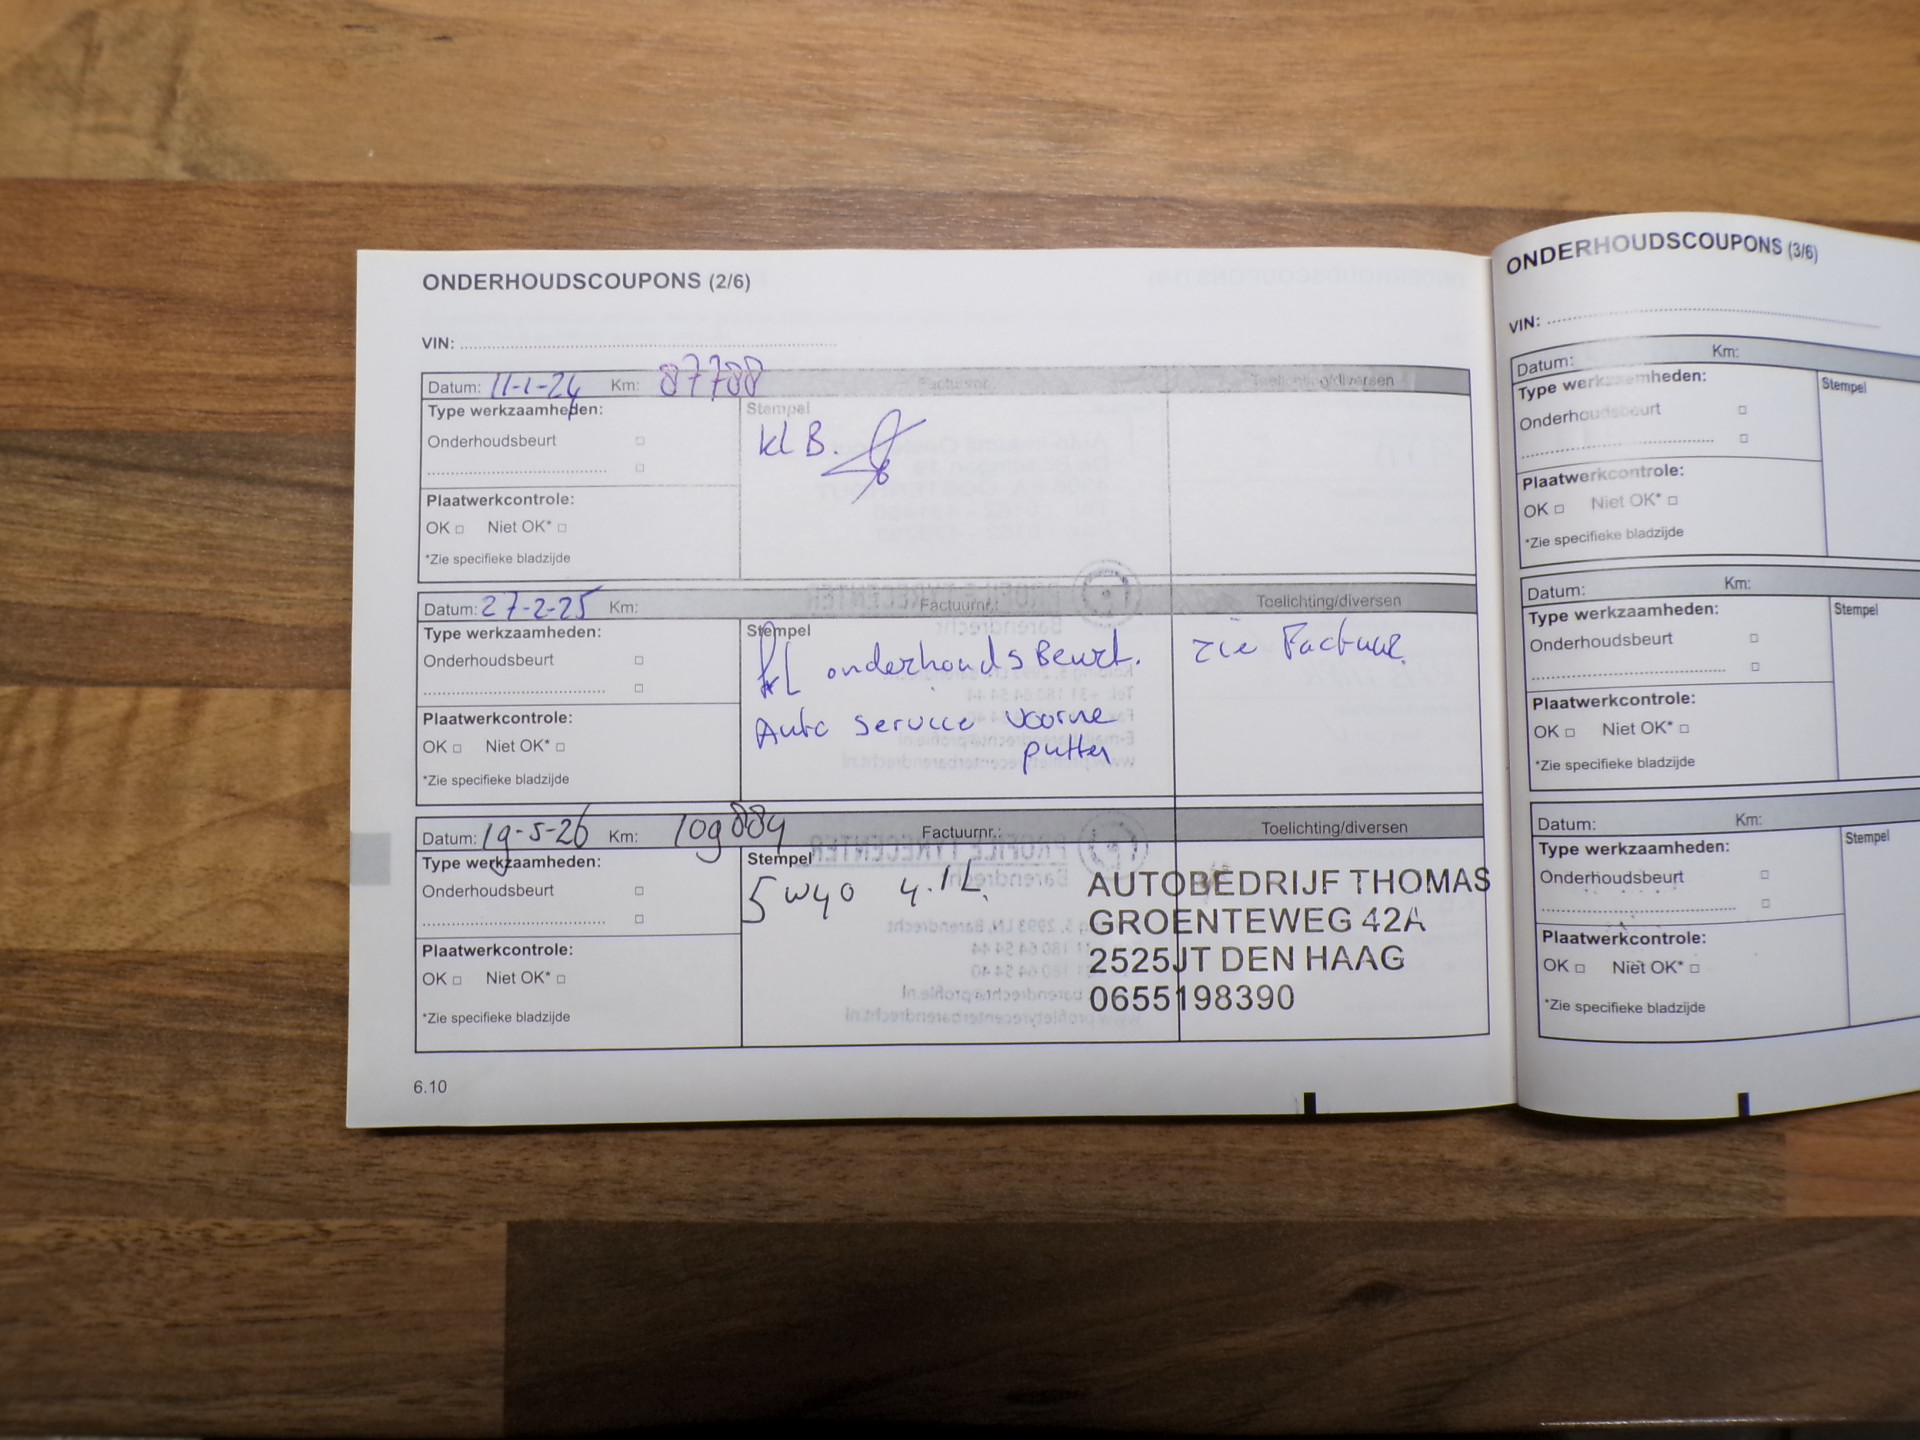 ONDERHOUDSCOUPONS (2/6)
VIN:
Datum: 11-1-24 Km: 87788 Factuurnr.: Toelichting/diversen
Type werkzaamheden: Stempel
kl B.
Onderhoudsbeurt
Plaatwerkcontrole:
OK Niet OK*
*Zie specifieke bladzijde
Datum: 27-2-25 Km: Factuurnr.: Toelichting/diversen
Type werkzaamheden: Stempel
KL onderhoudsBeurt. zie Factuur
Onderhoudsbeurt
Auto service voorne
putten
Plaatwerkcontrole:
OK Niet OK*
*Zie specifieke bladzijde
Datum: 19-5-26 Km: 109884 Factuurnr.: Toelichting/diversen
Type werkzaamheden: Stempel
5W40 4.1L
Onderhoudsbeurt
AUTOBEDRIJF THOMAS
GROENTEWEG 42A
2525JT DEN HAAG
0655198390
Plaatwerkcontrole:
OK Niet OK*
*Zie specifieke bladzijde
6.10
ONDERHOUDSCOUPONS (3/6)
VIN:
Datum: Km:
Type werkzaamheden: Stempel
Onderhoudsbeurt
Plaatwerkcontrole:
OK Niet OK*
*Zie specifieke bladzijde
Datum: Km:
Type werkzaamheden: Stempel
Onderhoudsbeurt
Plaatwerkcontrole:
OK Niet OK*
*Zie specifieke bladzijde
Datum: Km:
Type werkzaamheden: Stempel
Onderhoudsbeurt
Plaatwerkcontrole:
OK Niet OK*
*Zie specifieke bladzijde